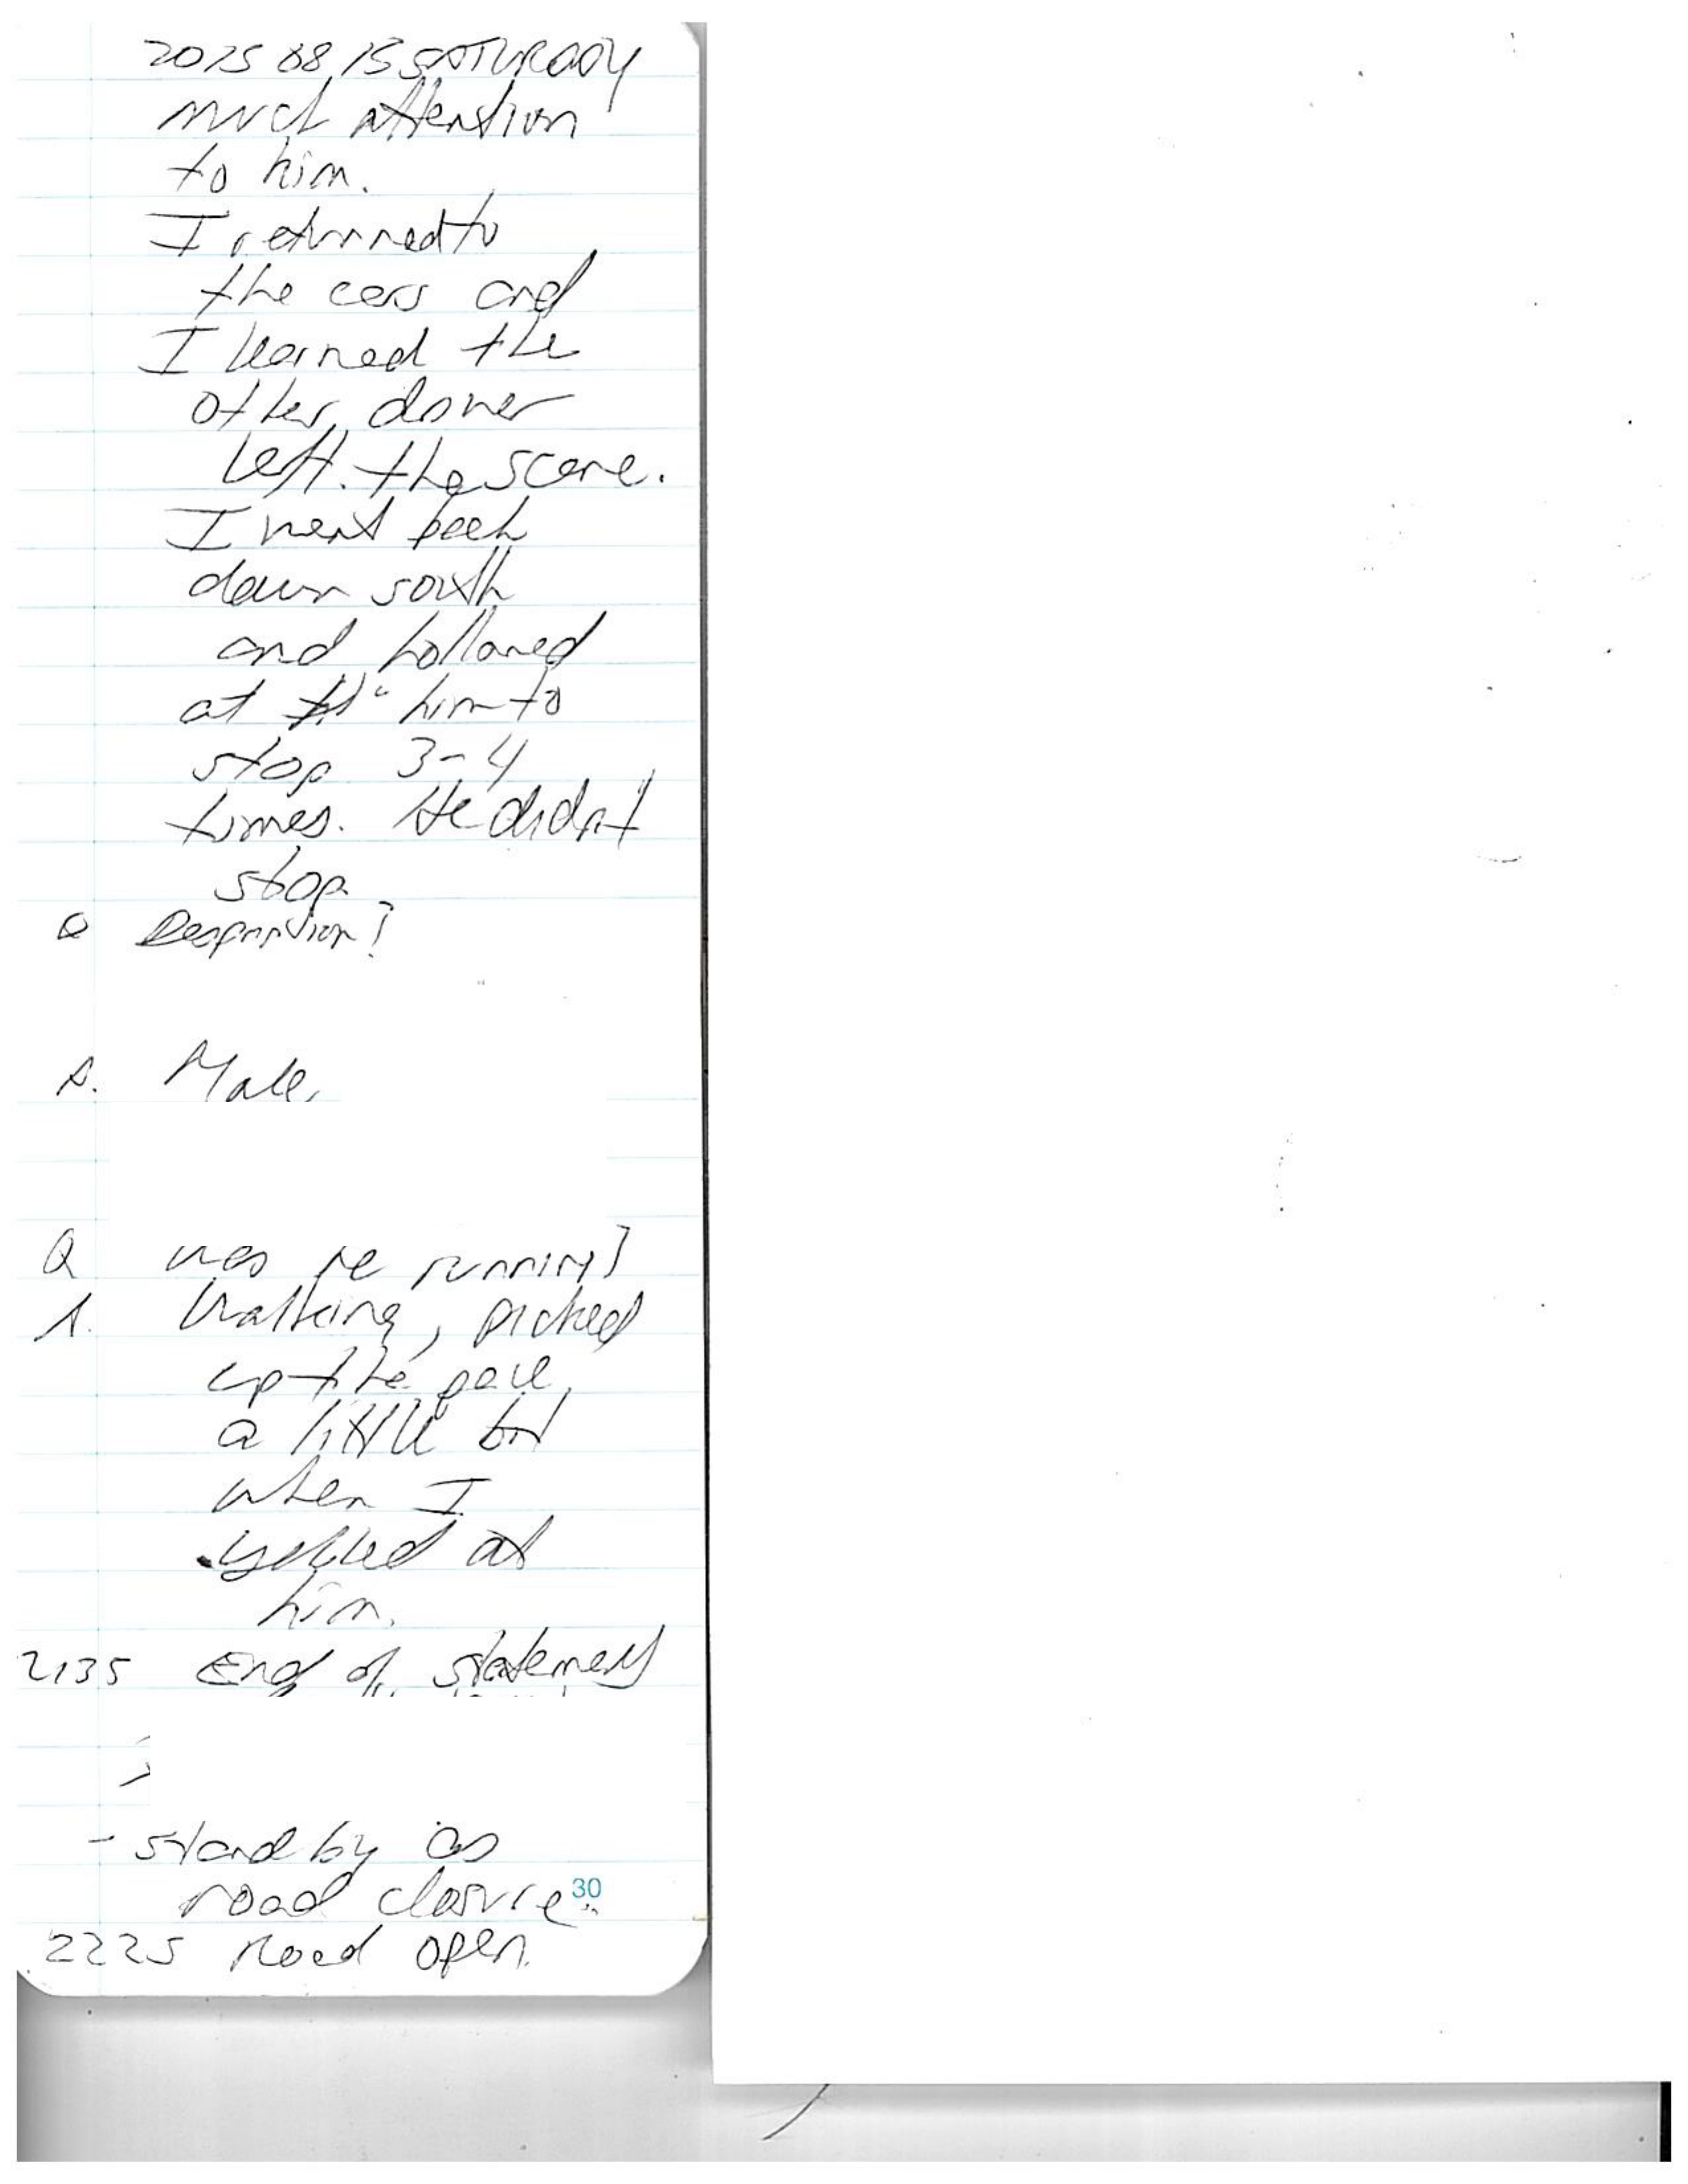 2015 08 15 SATURDAY
much attention
to him.
I returned to
the cars and
I learned the
other driver
left the scene.
I went back
down south
and hollared
at him to
stop 3-4
times. He didn't
stop.
Q Description?
A. Male,
Q was he running?
A. Walking, picked
up the pace
a little bit
when I
yelled at
him.
2135 End of statement
- stand by as
road closure.
30
2225 Road open.